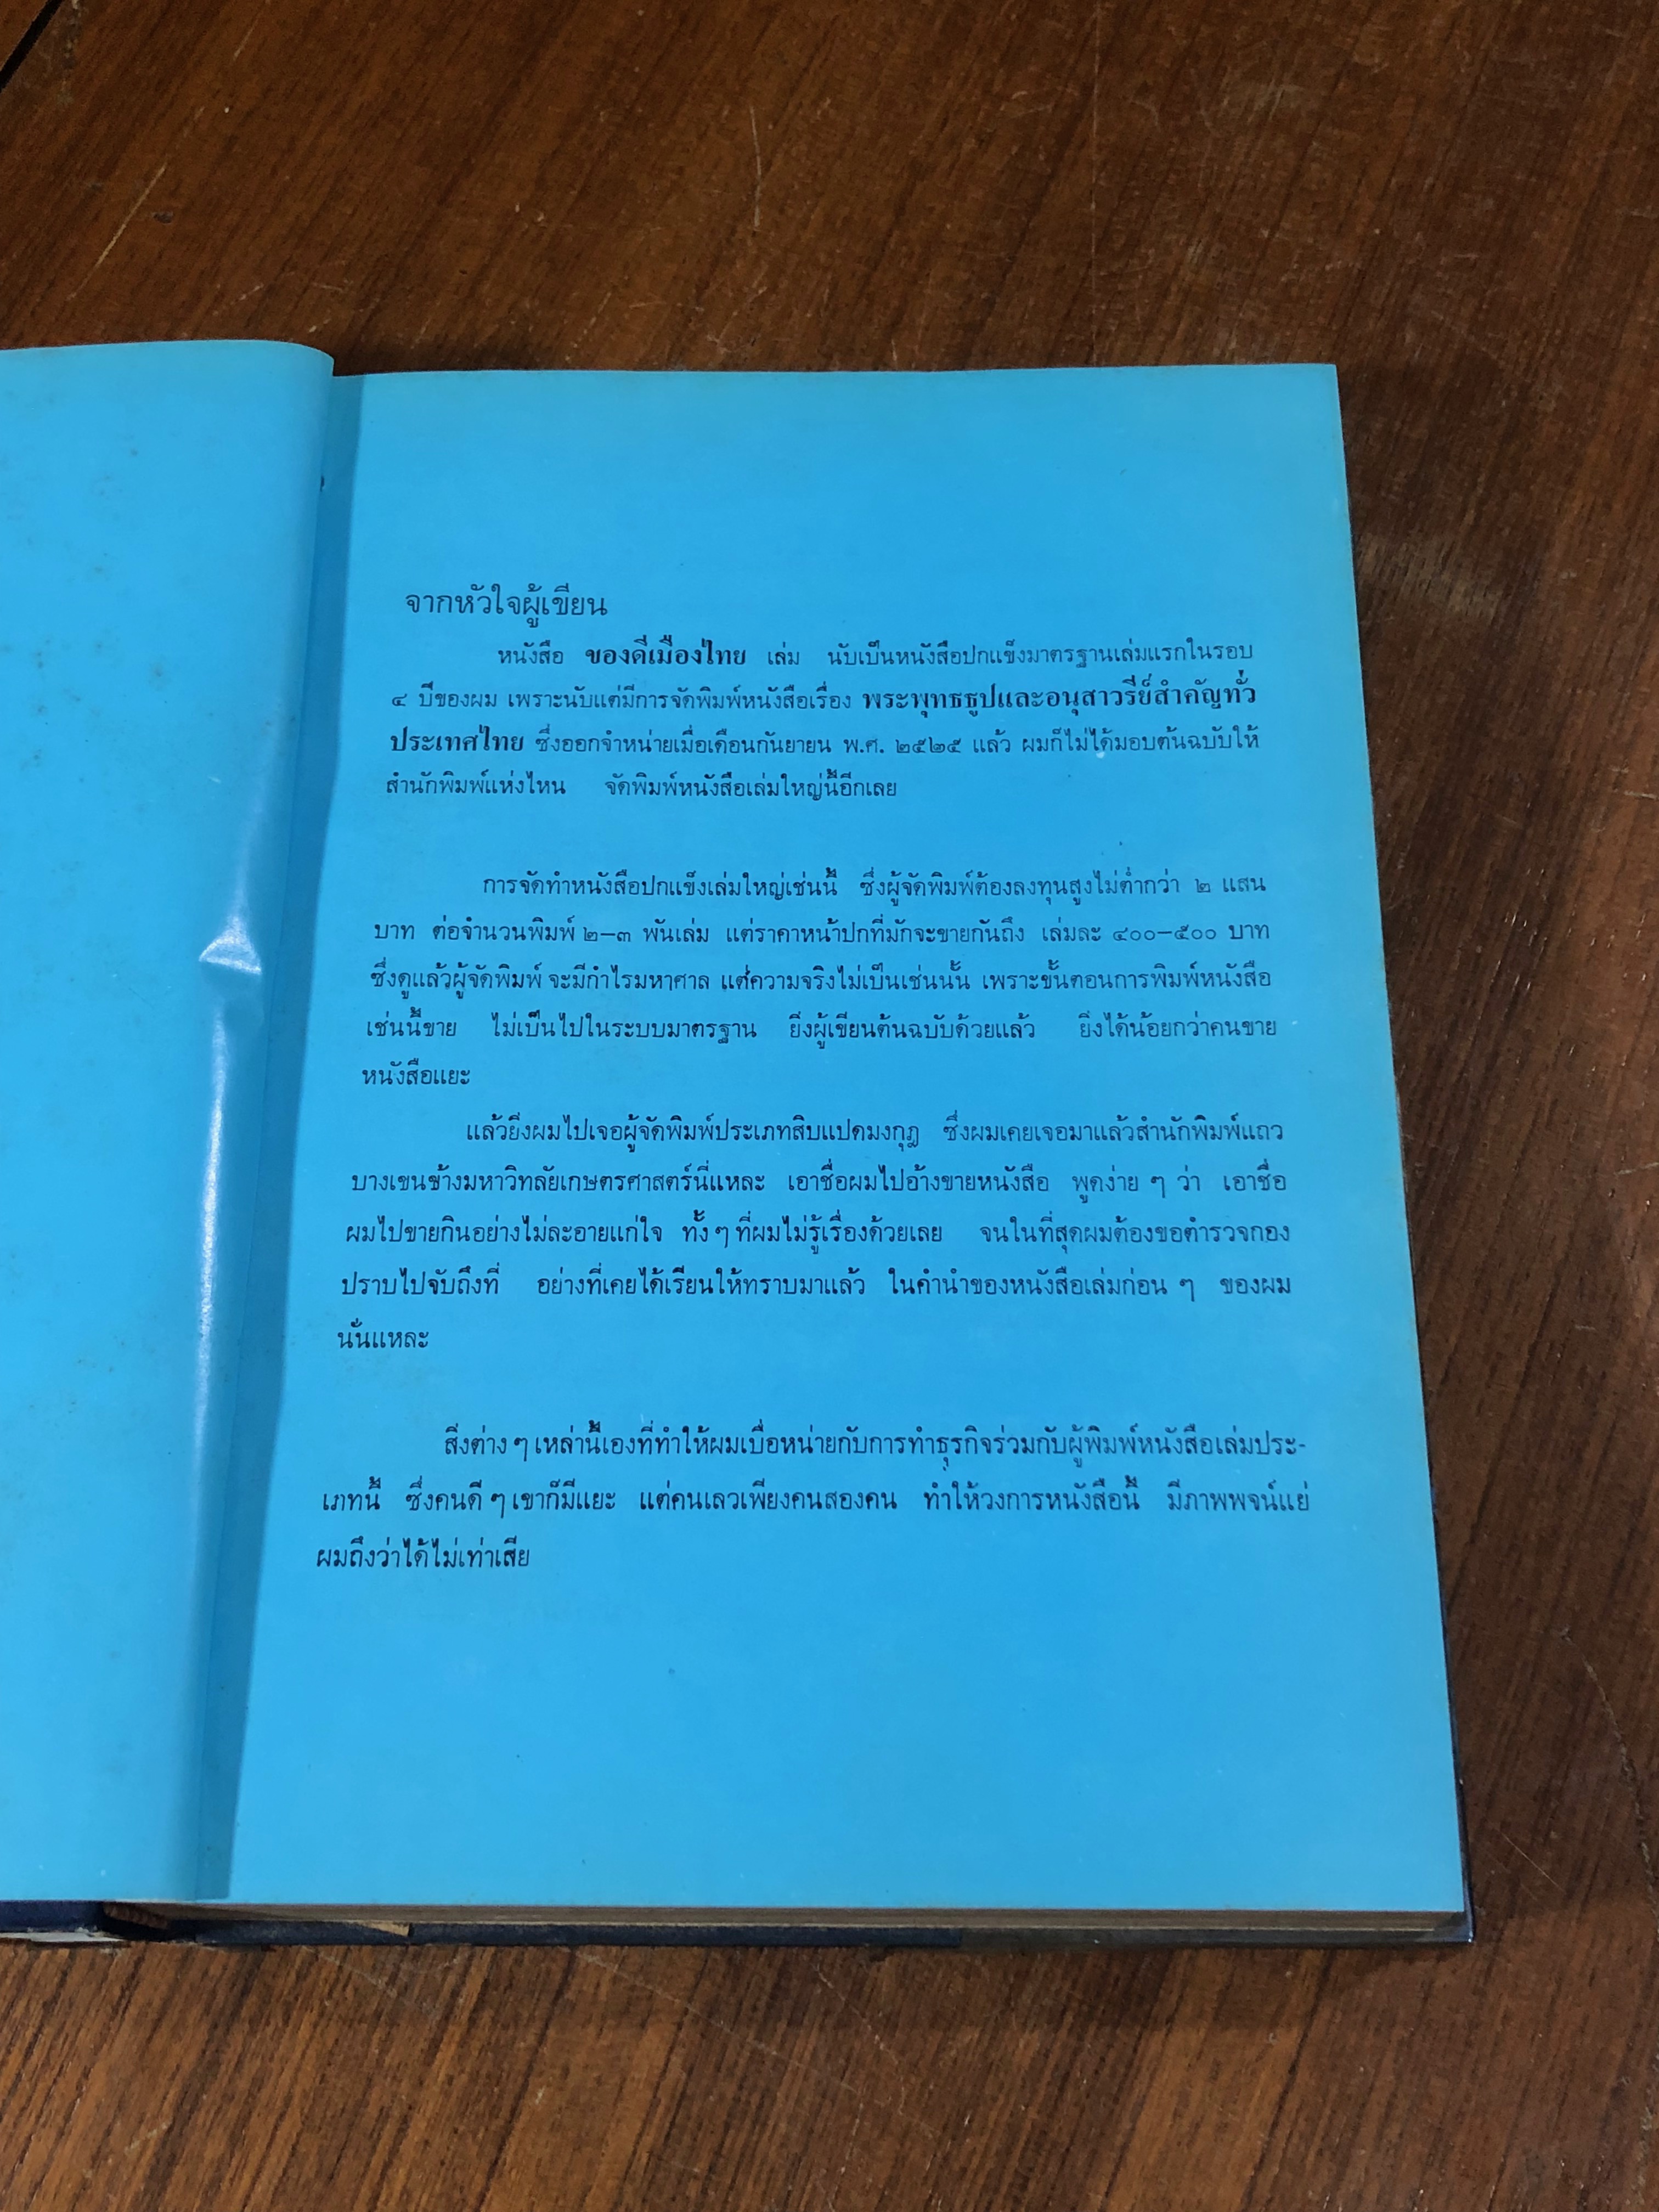 จากหัวใจผู้เขียน
หนังสือ ของดีเมืองไทย เล่ม นับเป็นหนังสือปกแข็งมาตรฐานเล่มแรกในรอบ
๔ ปีของผม เพราะนับแต่มีการจัดพิมพ์หนังสือเรื่อง พระพุทธรูปและอนุสาวรีย์สำคัญทั่ว
ประเทศไทย ซึ่งออกจำหน่ายเมื่อเดือนกันยายน พ.ศ. ๒๕๒๕ แล้ว ผมก็ไม่ได้มอบต้นฉบับให้
สำนักพิมพ์แห่งไหน จัดพิมพ์หนังสือเล่มใหญ่นี้อีกเลย
การจัดทำหนังสือปกแข็งเล่มใหญ่เช่นนี้ ซึ่งผู้จัดพิมพ์ต้องลงทุนสูงไม่ต่ำกว่า ๒ แสน
บาท ต่อจำนวนพิมพ์ ๒–๓ พันเล่ม แต่ราคาหน้าปกที่มักจะขายกันถึง เล่มละ ๔๐๐–๕๐๐ บาท
ซึ่งดูแล้วผู้จัดพิมพ์ จะมีกำไรมหาศาล แต่ความจริงไม่เป็นเช่นนั้น เพราะขั้นตอนการพิมพ์หนังสือ
เช่นนี้ขาย ไม่เป็นไปในระบบมาตรฐาน ยิ่งผู้เขียนต้นฉบับด้วยแล้ว ยิ่งได้น้อยกว่าคนขาย
หนังสือแยะ
แล้วยิ่งผมไปเจอผู้จัดพิมพ์ประเภทสิบแปดมงกุฎ ซึ่งผมเคยเจอมาแล้วสำนักพิมพ์แถว
บางเขนข้างมหาวิทลัยเกษตรศาสตร์นี่แหละ เอาชื่อผมไปอ้างขายหนังสือ พูดง่าย ๆ ว่า เอาชื่อ
ผมไปขายกินอย่างไม่ละอายแก่ใจ ทั้ง ๆ ที่ผมไม่รู้เรื่องด้วยเลย จนในที่สุดผมต้องขอตำรวจกอง
ปราบไปจับถึงที่ อย่างที่เคยได้เรียนให้ทราบมาแล้ว ในคำนำของหนังสือเล่มก่อน ๆ ของผม
นั่นแหละ
สิ่งต่าง ๆ เหล่านี้เองที่ทำให้ผมเบื่อหน่ายกับการทำธุรกิจร่วมกับผู้พิมพ์หนังสือเล่มประ-
เภทนี้ ซึ่งคนดี ๆ เขาก็มีแยะ แต่คนเลวเพียงคนสองคน ทำให้วงการหนังสือนี้ มีภาพพจน์แย่
ผมถึงว่าได้ไม่เท่าเสีย